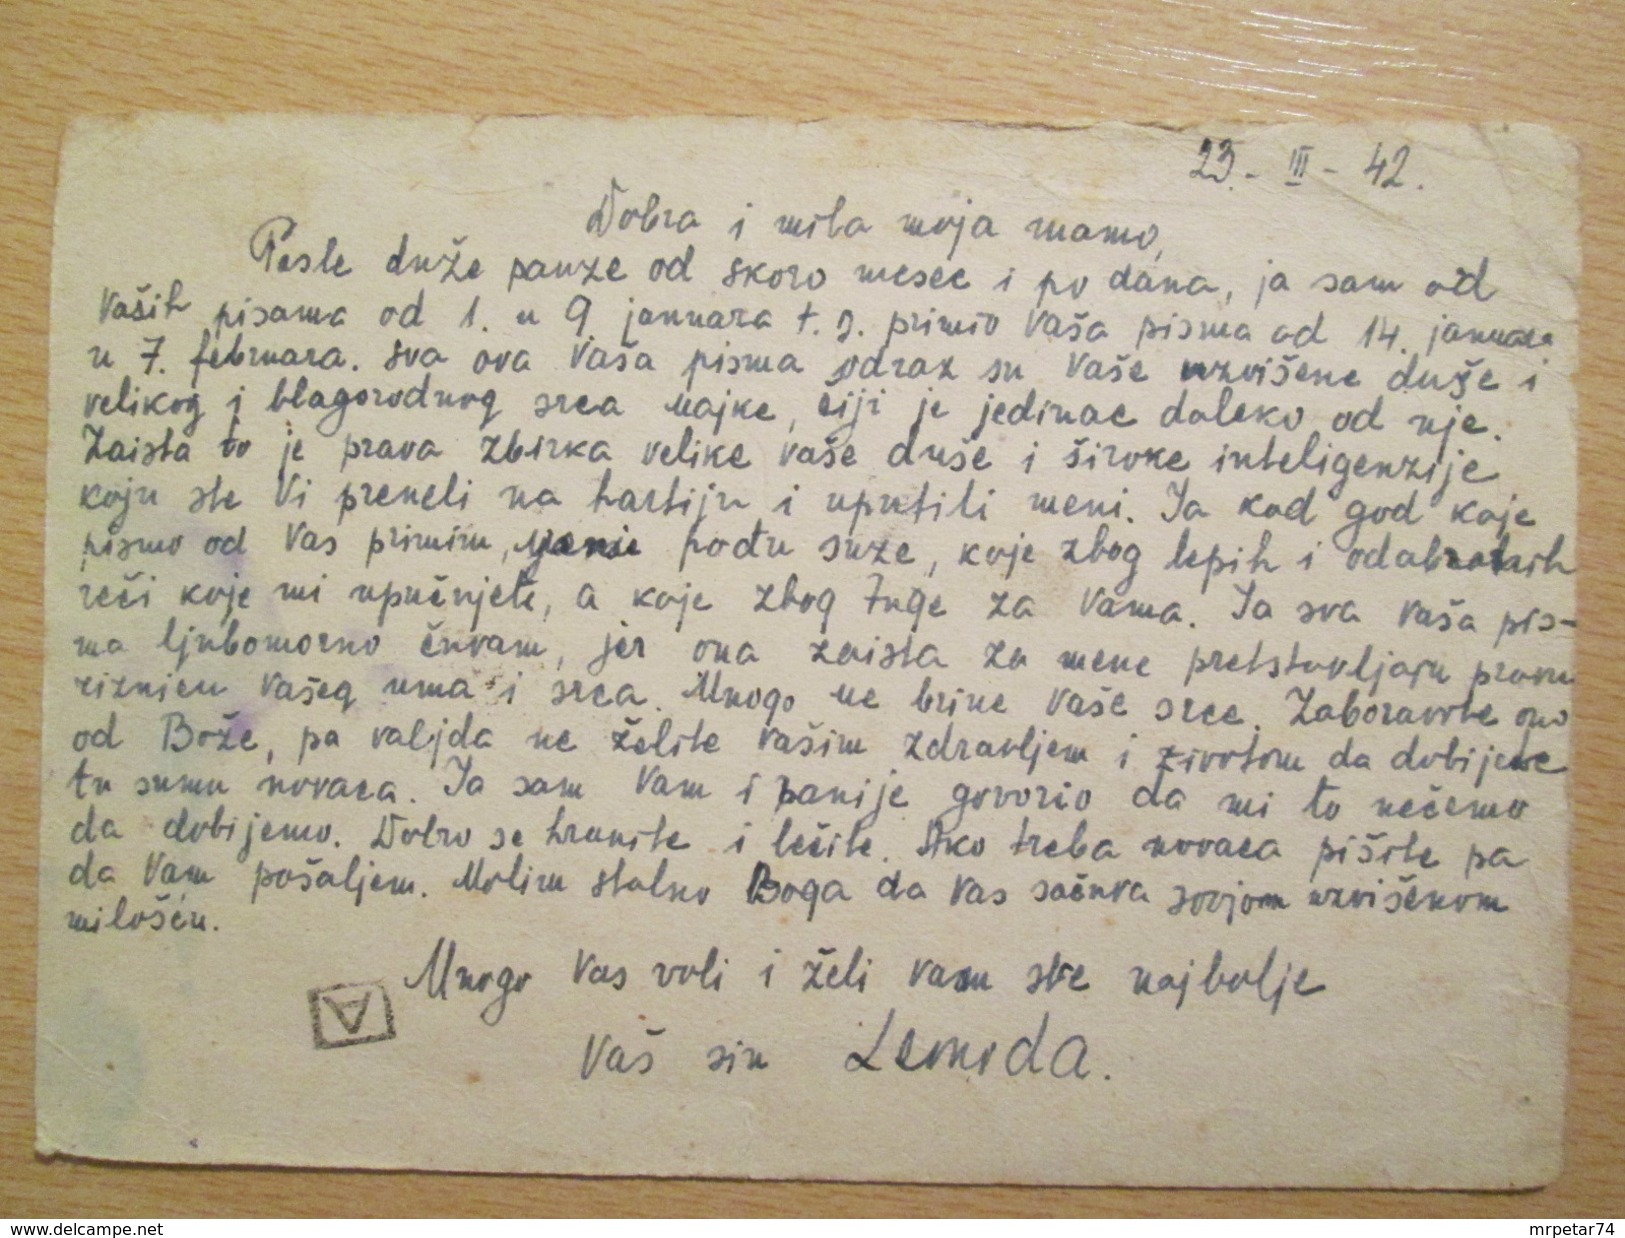 23.- III - 42.
Dobra i mila moja mamo,
Posle duže pauze od skoro mesec i po dana, ja sam od
Vaših pisama od 1. u 9. januara t. g. primio Vaša pisma od 14. januara
u 7. februara. Sva ova Vaša pisma odraz su Vaše uzvišene duše i
velikog i blagorodnog srca Majke, čiji je jedinac daleko od nje.
Zaista to je prava zbirka velike Vaše duše i široke inteligenzije
koju ste Vi preneli na hartiju i uputili meni. Ja kad god koje
pismo od Vas primim, meni pođu suze, koje zbog lepih i odabranih
reči koje mi upućujete, a koje zbog tuge za Vama. Ja sva Vaša pis-
ma ljubomorno čuvam, jer ona zaista za mene pretstavljaju pravu
riznicu Vašeg uma i srca. Mnogo ne brine Vaše srce. Zaboravite ono
od Bože, pa valjda ne želite Vašim zdravljem i životom da dobijete
tu sumu novaca. Ja sam Vam i ranije govorio da mi to nećemo
da dobijemo. Dobro se hranite i lečite. Ako treba novaca pišite pa
da Vam pošaljem. Molim stalno Boga da Vas sačuva svojom uzvišenom
milošću.
Mnogo Vas voli i želi Vam sve najbolje
A
Vaš sin
www.delcampe.net
mrpetar74